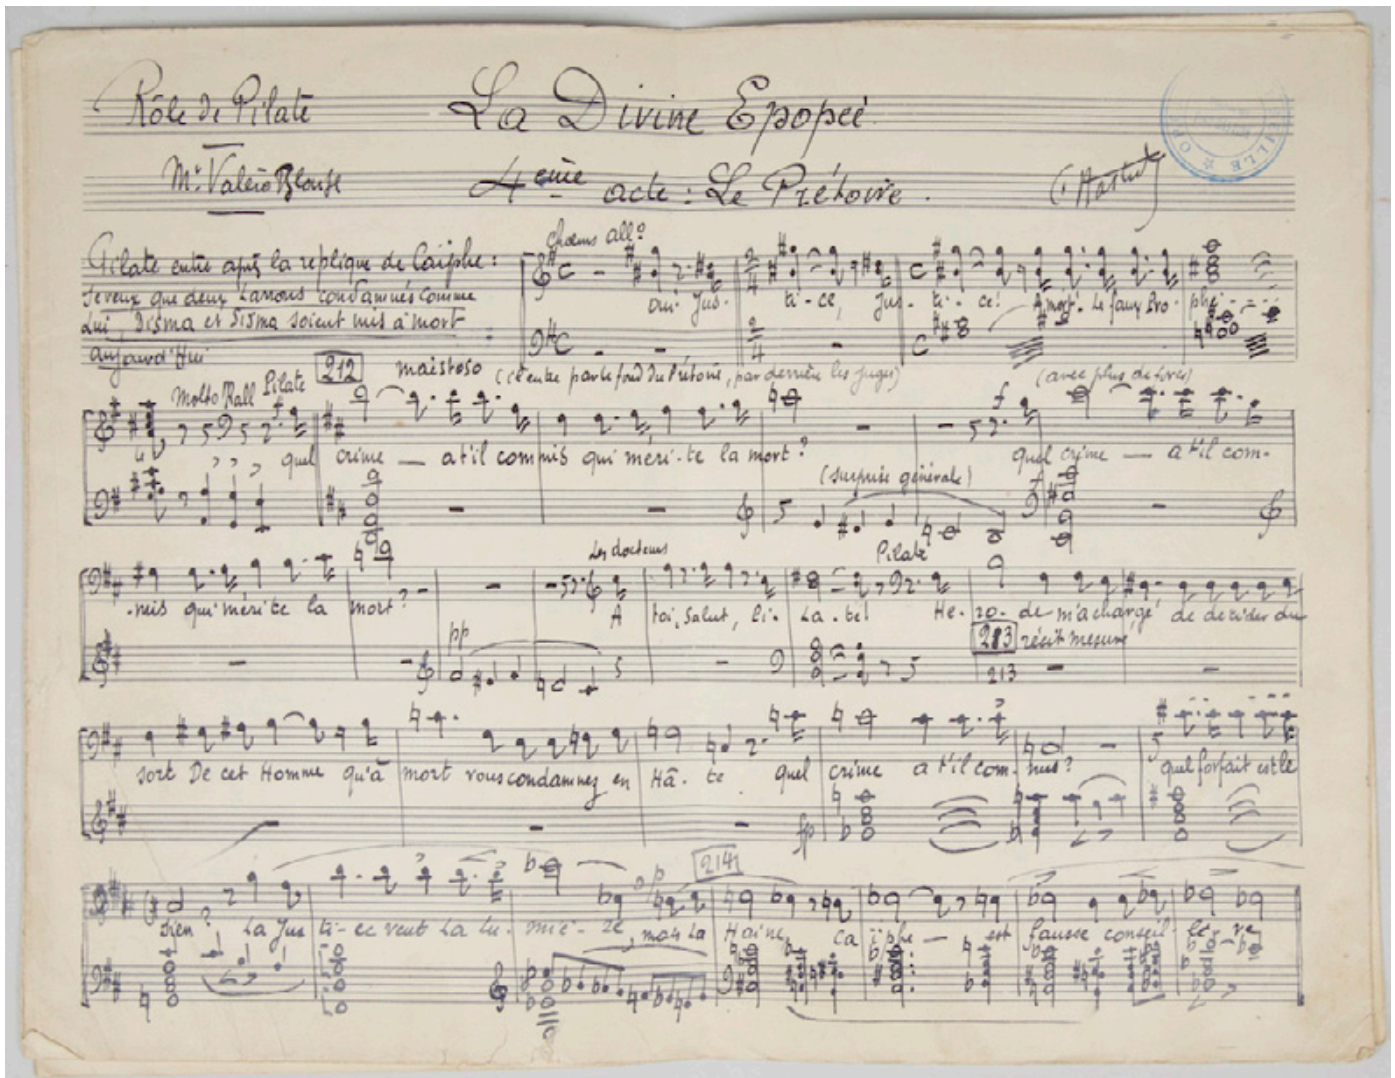 Rôle de Pilate La Divine Epopée
Mr. Valério Blouse 4ème acte : Le Prétoire.
Pilate entre après la replique de Caïphe :
Je veux que deux Larrons condamnés comme
Lui, Disma et Sisma soient mis à mort
aujourd'Hui
chœurs all°
Oui Jus - ti - ce, Jus - ti - ce! A mort. Le faux Pro - phè -
212 maestoso (il entre par le fond du Prétoire, par derrière les juges) (avec plus de force)
Molto Rall Pilate f f
quel crime — a t'il commis qui méri - te la mort? quel crime — a t'il com-
(surprise générale)
Les docteurs Pilate
-mis qui méri te la mort? A toi, salut, Pi - La - te! He - ro - de m'a chargé de decider du
pp 213 récit mesuré
213
sort De cet Homme qu'à mort vous condamnez en Hâ - te quel crime a t'il com - mis? quel forfait est le
fp
214
p
sien? La Jus ti - ce veut La Lu - miè - re, mais La Haine, Ca ïphe — est fausse conseil - lè - re